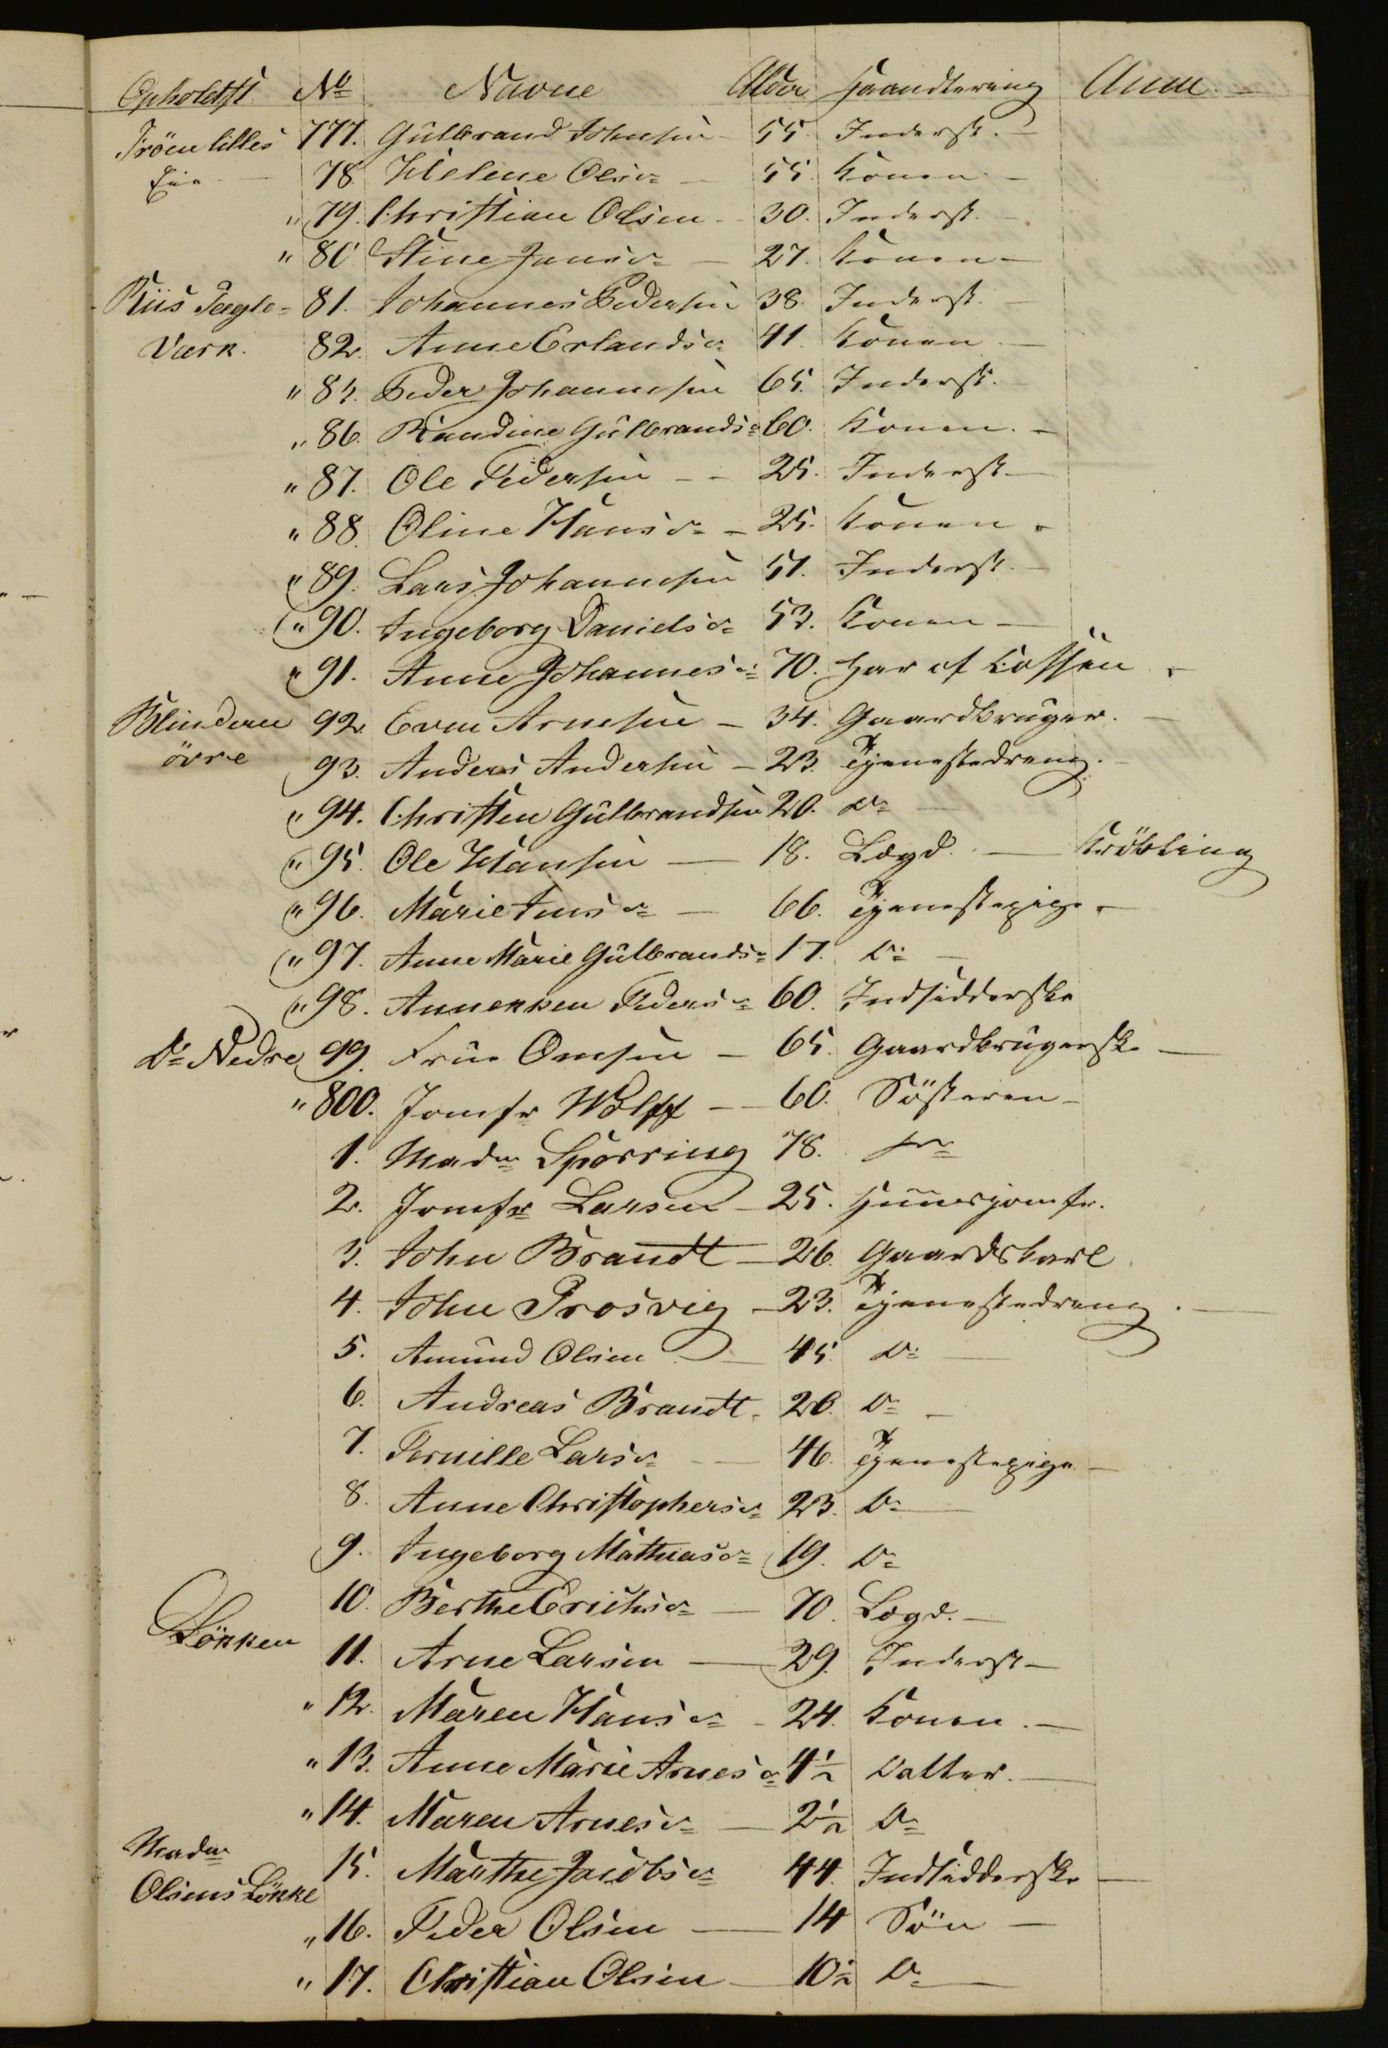 Opholdst. No Navne Alder Haandtering Anm.
Tröen lilles 777. Gulbrand Johnsen 55. Inderst.
Eie 78 Helene Olsdr 55. Konen
" 79. Christian Olsen 30. Inderst
" 80 Stine Jansdr 27. Konen
Riis Tegle= 81. Johannes Pedersen 38. Inderst.
Værk. 82. Anne Erlandsdr 41. Konen
" 85. Peder Johannesen 65. Inderst.
" 86. Randine Gulbrandsdr 60. Konen.
" 87. Ole Pedersen 25. Inderst
" 88. Oline Hansdr 25. Konen
" 89. Lars Johannesen 51. Inderst.
" 90. Ingeborg Danielsdr 53. Konen
" 91. Anne Johannesdr 70. Har af Kassen
Blindern 92. Even Arnesen 34. Gaardbruger.
övre 93. Anders Andersen 23. Tjenestedreng.
" 94. Christen Gulbrandsen 20. Do
" 95. Ole Hansen 18. Lægd. Kröbling
" 96. Marie Jensdr 66. Tjenestepige
" 97. Anne Marie Gulbrandsdr 17. Do
" 98. Annekken Pedersdr 60. Indsidderske
Do Nedre 99. Frue Omsen 65. Gaardbrugerske
" 800. Jomfr Wolff 60. Sösteren
1. Madm Sporring 78.
2. Jomfr Larsen 25. Huusjomfr.
3. John Brandt 26. Gaardskarl
4. John Prosvig 23. Tjenestedreng.
5. Amund Olsen 45 Do
6. Andreas Brandt 20. Do
7. Pernille Larsdr 46. Tjenestepige
8. Anne Christophersdr 23. Do
9. Ingeborg Mathiasdr 19. Do
10. Berthe Erichsdr 70. Lægd.
Lökken 11. Arne Larsen 29. Inderst
" 12. Maren Hansdr 24. Konen.
" 13. Anne Marie Arnesdr 4½ Datter.
" 14. Maren Arnesdr 2½ Do
Madm 15. Marthe Jacobsdr 44. Indsidderske
Olsens Lökke
" 16. Peder Olsen 14 Sön
" 17. Christian Olsen 10½ Do